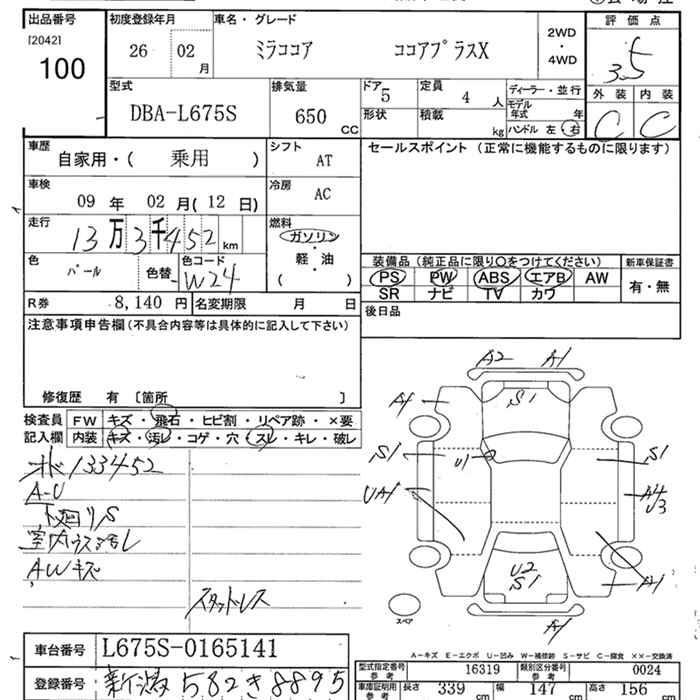 出品番号 初度登録年月 車名・グレード 2WD・4WD 評価点
[2042]
100 26 02月 ミラココア ココアプラスX 3.5
型式 排気量 ドア 5 定員 4人 ディーラー・並行 外装 内装
DBA-L675S 650 CC 形状 積載 kg モデル年式 年 C C
ハンドル 左・右
車歴 自家用・( 乗用 ) シフト AT セールスポイント (正常に機能するものに限ります)
車検 09年 02月(12日) 冷房 AC
走行 13万3千452km 燃料 ガソリン 軽・油 ( )
色 パール 色替 色コード W24
装備品(純正品に限り○をつけてください) 新車保証書
PS PW ABS エアB AW 有・無
SR ナビ TV カワ
R券 8,140円 名変期限 月 日 後日品
注意事項申告欄(不具合内容等は具体的に記入して下さい)
修復歴 有 [箇所 ]
検査員記入欄 FW キズ・飛石・ヒビ割・リペア跡・×要
内装 キズ・汚レ・コゲ・穴・スレ・キレ・破レ
133452
A-U
下廻りS
AWキズ
スタッドレス
A2 A1
A1 S1
S1 U1 S1
UA1 A4
U3
U2
S1 A1
A1
スペア
A-キズ E-エクボ U-凹み W-補修跡 S-サビ C-腐食 XX-交換済
車台番号 L675S-0165141
登録番号 新潟 582き8895
型式指定番号 参考 16319 類別区分番号 参考 0024
車庫証明用 参考 長さ 339cm 幅 147cm 高さ 156cm